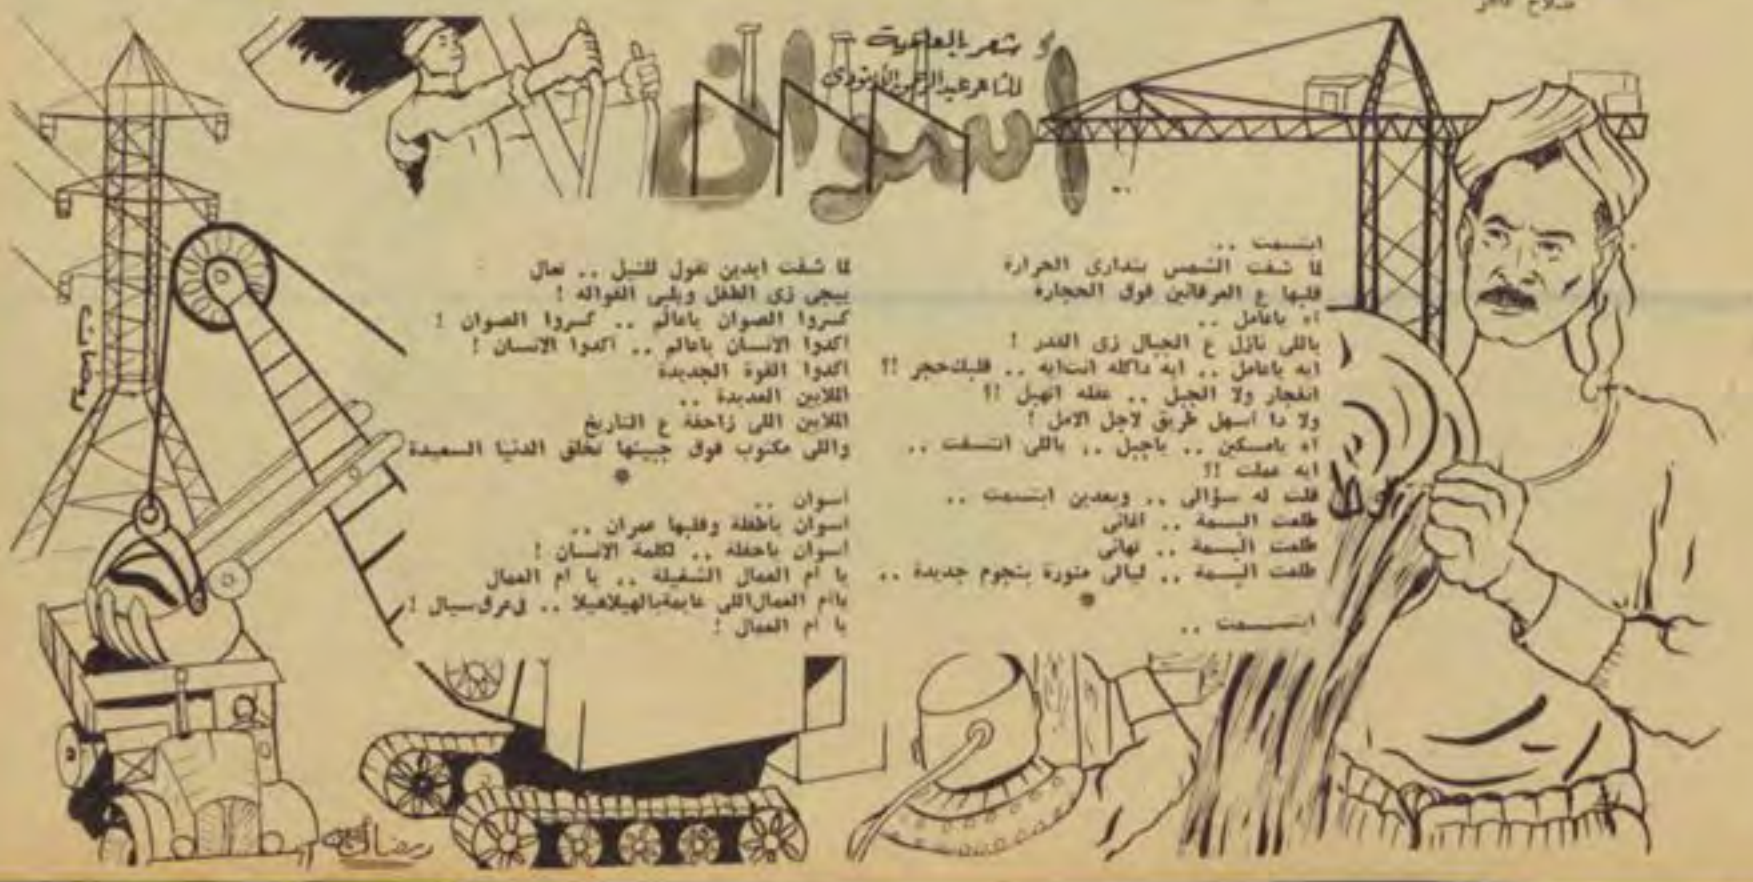 صلاح
شعر بالعامية
للشاعر عبدالرحمن الأبنودى
اسوان
ابتسمت ..
لما شفت الشمس بتدارى الحرارة
قلبها ع العرقانين فوق الحجاره
اه ياعامل ..
ياللى نازل ع الجبال زى القدر !
ايه ياعامل .. ايه داكله انت ايه .. قلبك حجر !؟
انفجار ولا الجبل .. عقله اتهبل !؟
ولا دا اسهل طريق لاجل الامل !
اه يامسكين .. ياجبل .. ياللى انتسفت ..
ايه عملت !؟
قلت له سؤالى .. وبعدين ابتسمت ..
طلعت البسمة .. اغانى
طلعت البسمة .. تهانى
طلعت البسمة .. ليالى منورة بنجوم جديدة ..
*
ابتسمت ..
لما شفت ايدين تقول للنيل .. تعال
ييجى زى الطفل ويلبى القواله !
كسروا الصوان ياعالم .. كسروا الصوان !
اكدوا الانسان ياعالم .. اكدوا الانسان !
اكدوا القوة الجديدة
الملايين العديدة ..
الملايين اللى زاحفة ع التاريخ
واللى مكتوب فوق جبينها تخلق الدنيا السعيدة
*
اسوان ..
اسوان ياطفلة وقلبها عمران ..
اسوان ياحفلة .. لكلمة الانسان !
يا ام العمال الشغيلة .. يا ام العمال
ياام العمال اللى عايمة بالهيلاهيلا .. ف عرق سيال !
يا ام العمال !
رمضان